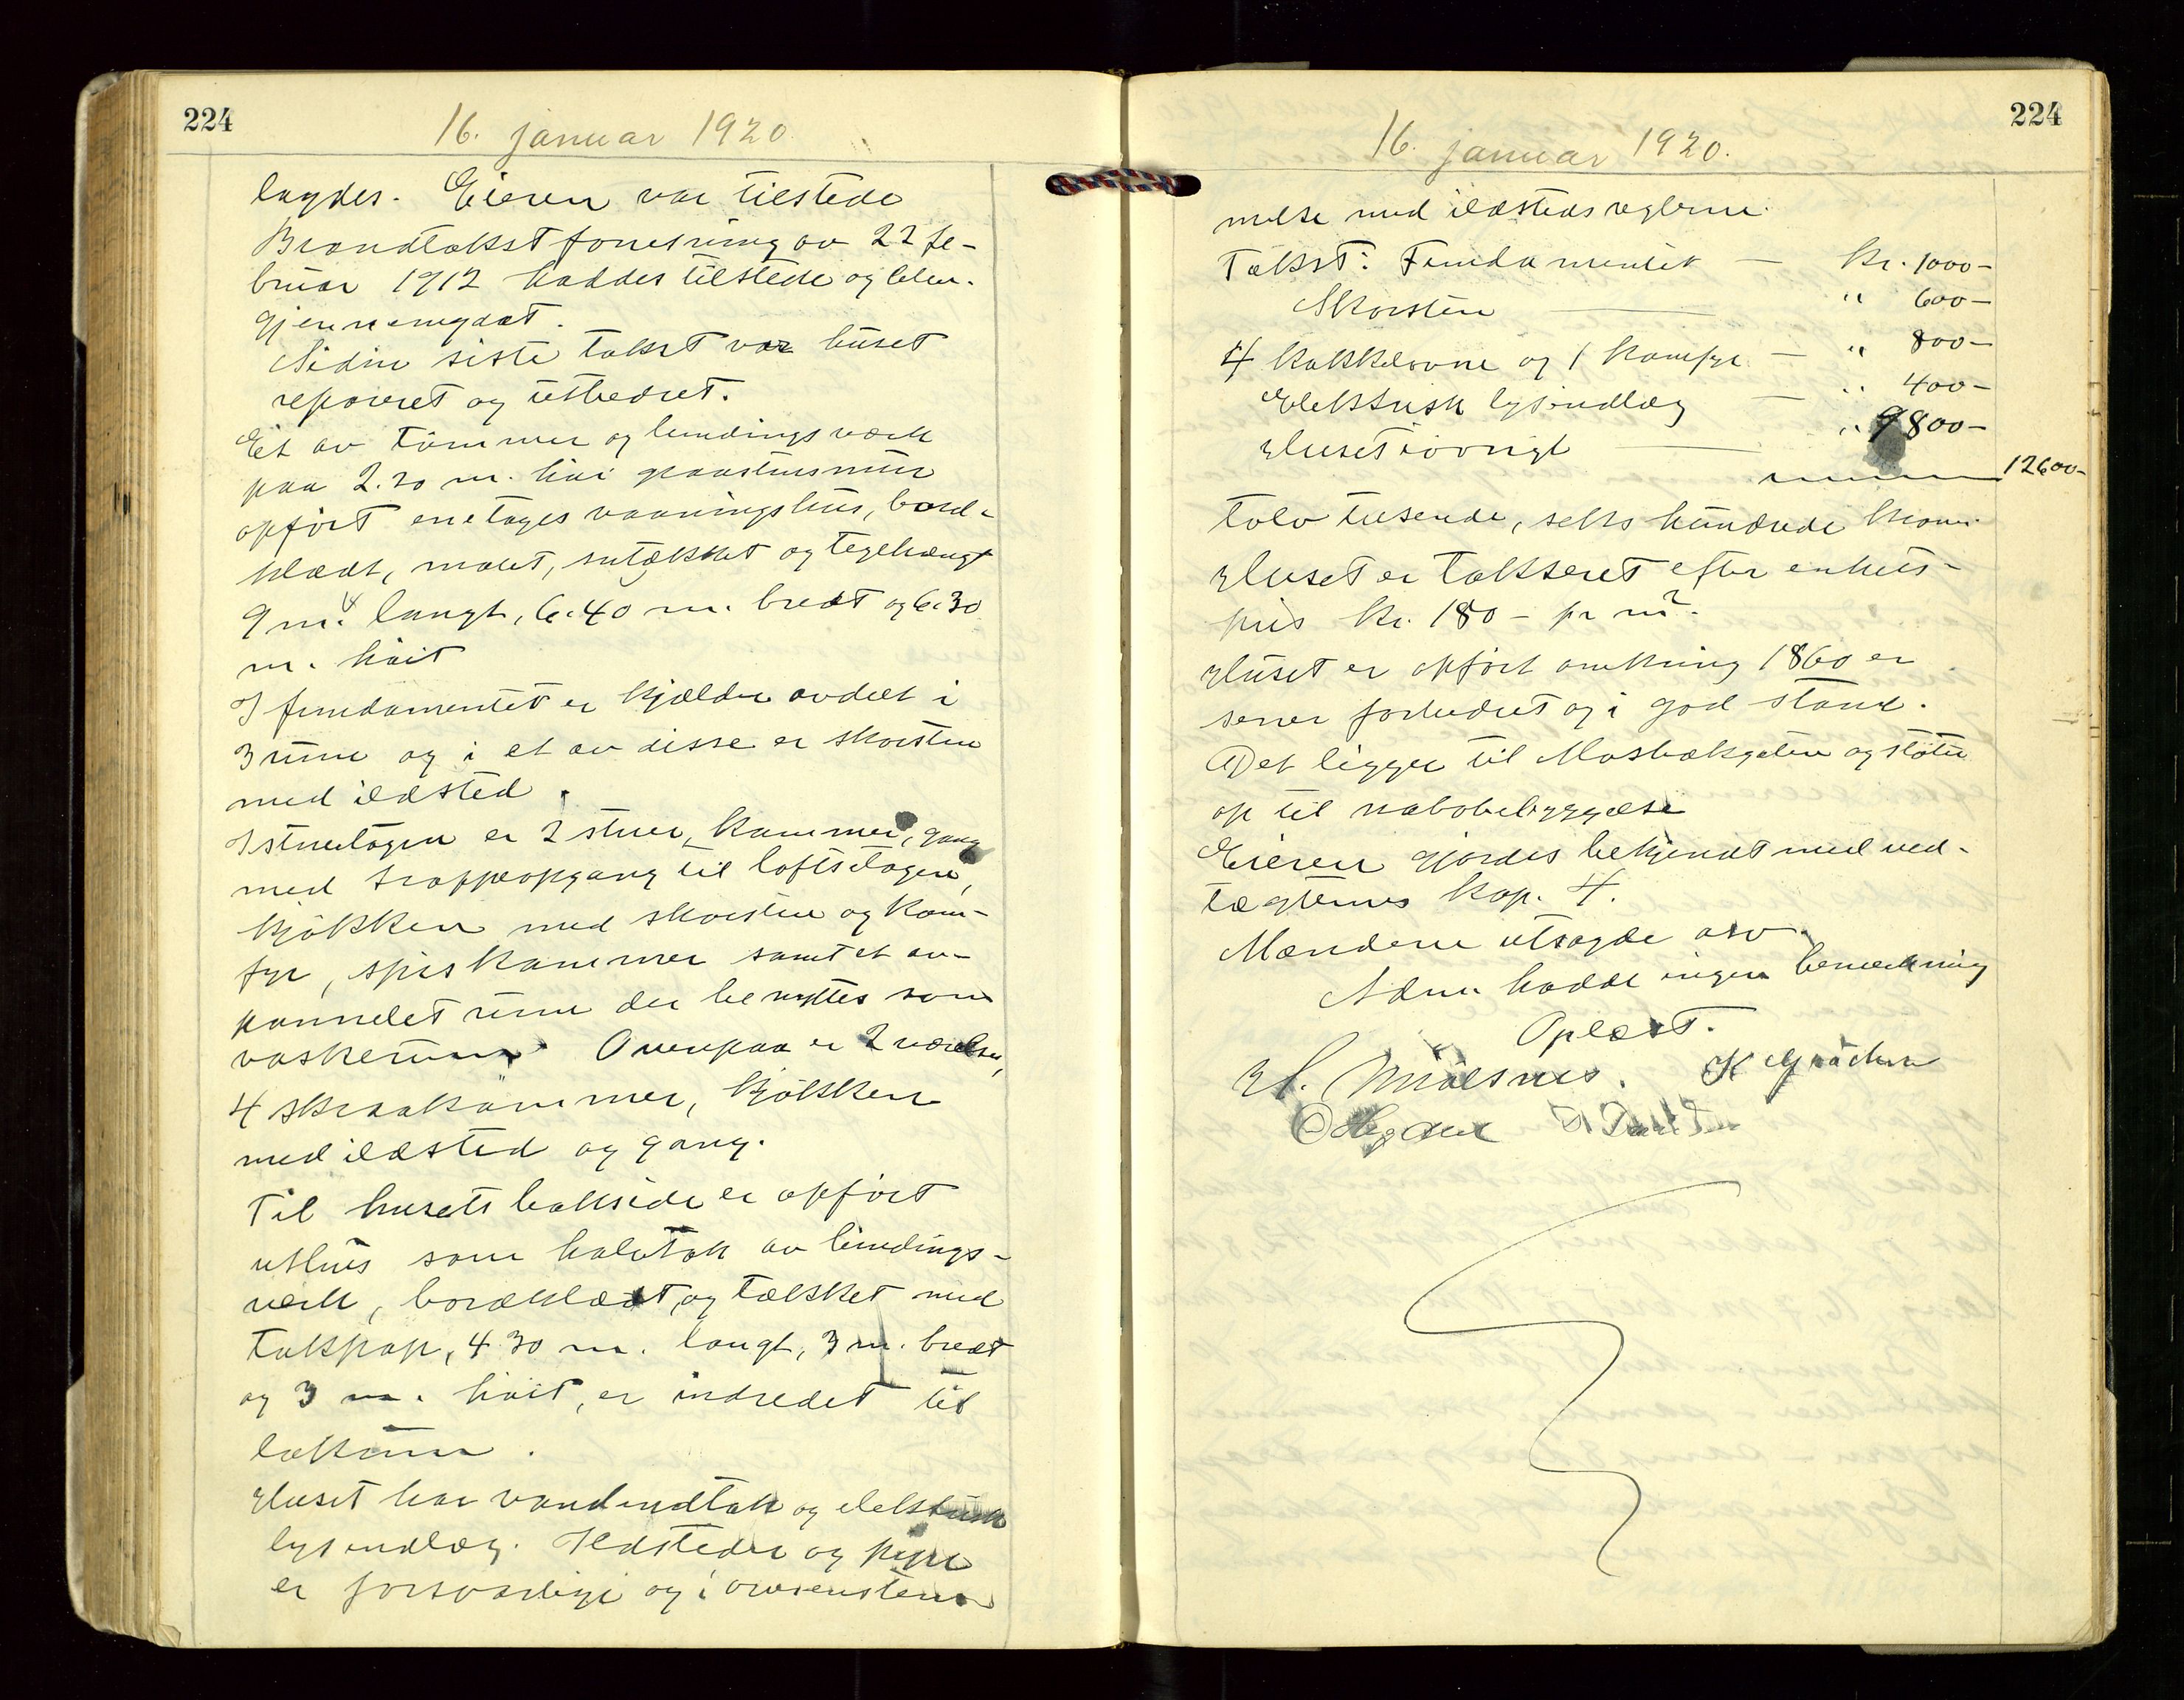 224
16. januar 1920
lagdes. Eieren var tilstede
Brandtakstforretning av 22 fe-
bruar 1912 haddes tilstede og blev
gjennemgaat.
Siden siste takst var huset
reparert og utbedret.
Et av tömmer og bindingsverk
paa 2.20 m. höi graastensmur
opfört enetages vaaningshus, bord-
klædt, malet, sutækket og teglhængt
9 m. langt, 6.40 m. bredt og 6.30
m. höit
I fundamentet er kjælder avdelt i
3 rum og i et av disse er skorsten
med ildsted.
I stuetagen er 2 stuer, kammer, gang
med trappeopgang til loftsetagen,
kjökken med skorsten og kom-
fyr, spiskammer samt et av-
pannelet rum der benyttes som
vaskerum. Ovenpaa er 2 værelser,
4 skraakammer, kjökken
med ildsted og gang.
Til husets bakside er opfört
uthus som halvtak av bindings-
verk, bordklædt, og tækket med
takpap, 4.30 m. langt, 3 m. bredt
og 3 m. höit, er indredet til
lokum.
Huset har vandindtak og elektrisk
lysindlæg. Ildsteder og pipe
er forsvarlige og i overensstem
224
16. januar 1920.
melse med ildstedsreglerne.
Takst: Fundamentet — kr. 1000-
Skorsten — " 600-
4 kakkelovne og 1 komfyr — " 800-
Elektrisk lysindlæg — " 400-
Huset iövrigt — " 9800-
12600-
tolv tusende, seks hundrede kroner
Huset er takseret efter enhets-
pris kr. 180 - pr m².
Huset er opfört omkring 1860 er
senere forbedret og i god stand.
Det ligger til Mosbækgaten og stöter
op til nabobebyggelse
Eieren gjordes bekjendt med ved-
tægternes kap. 4.
Mændene utsagde osv.
Ingen hadde ingen bemerkning
Oplæst.
H. Mjölsnes.